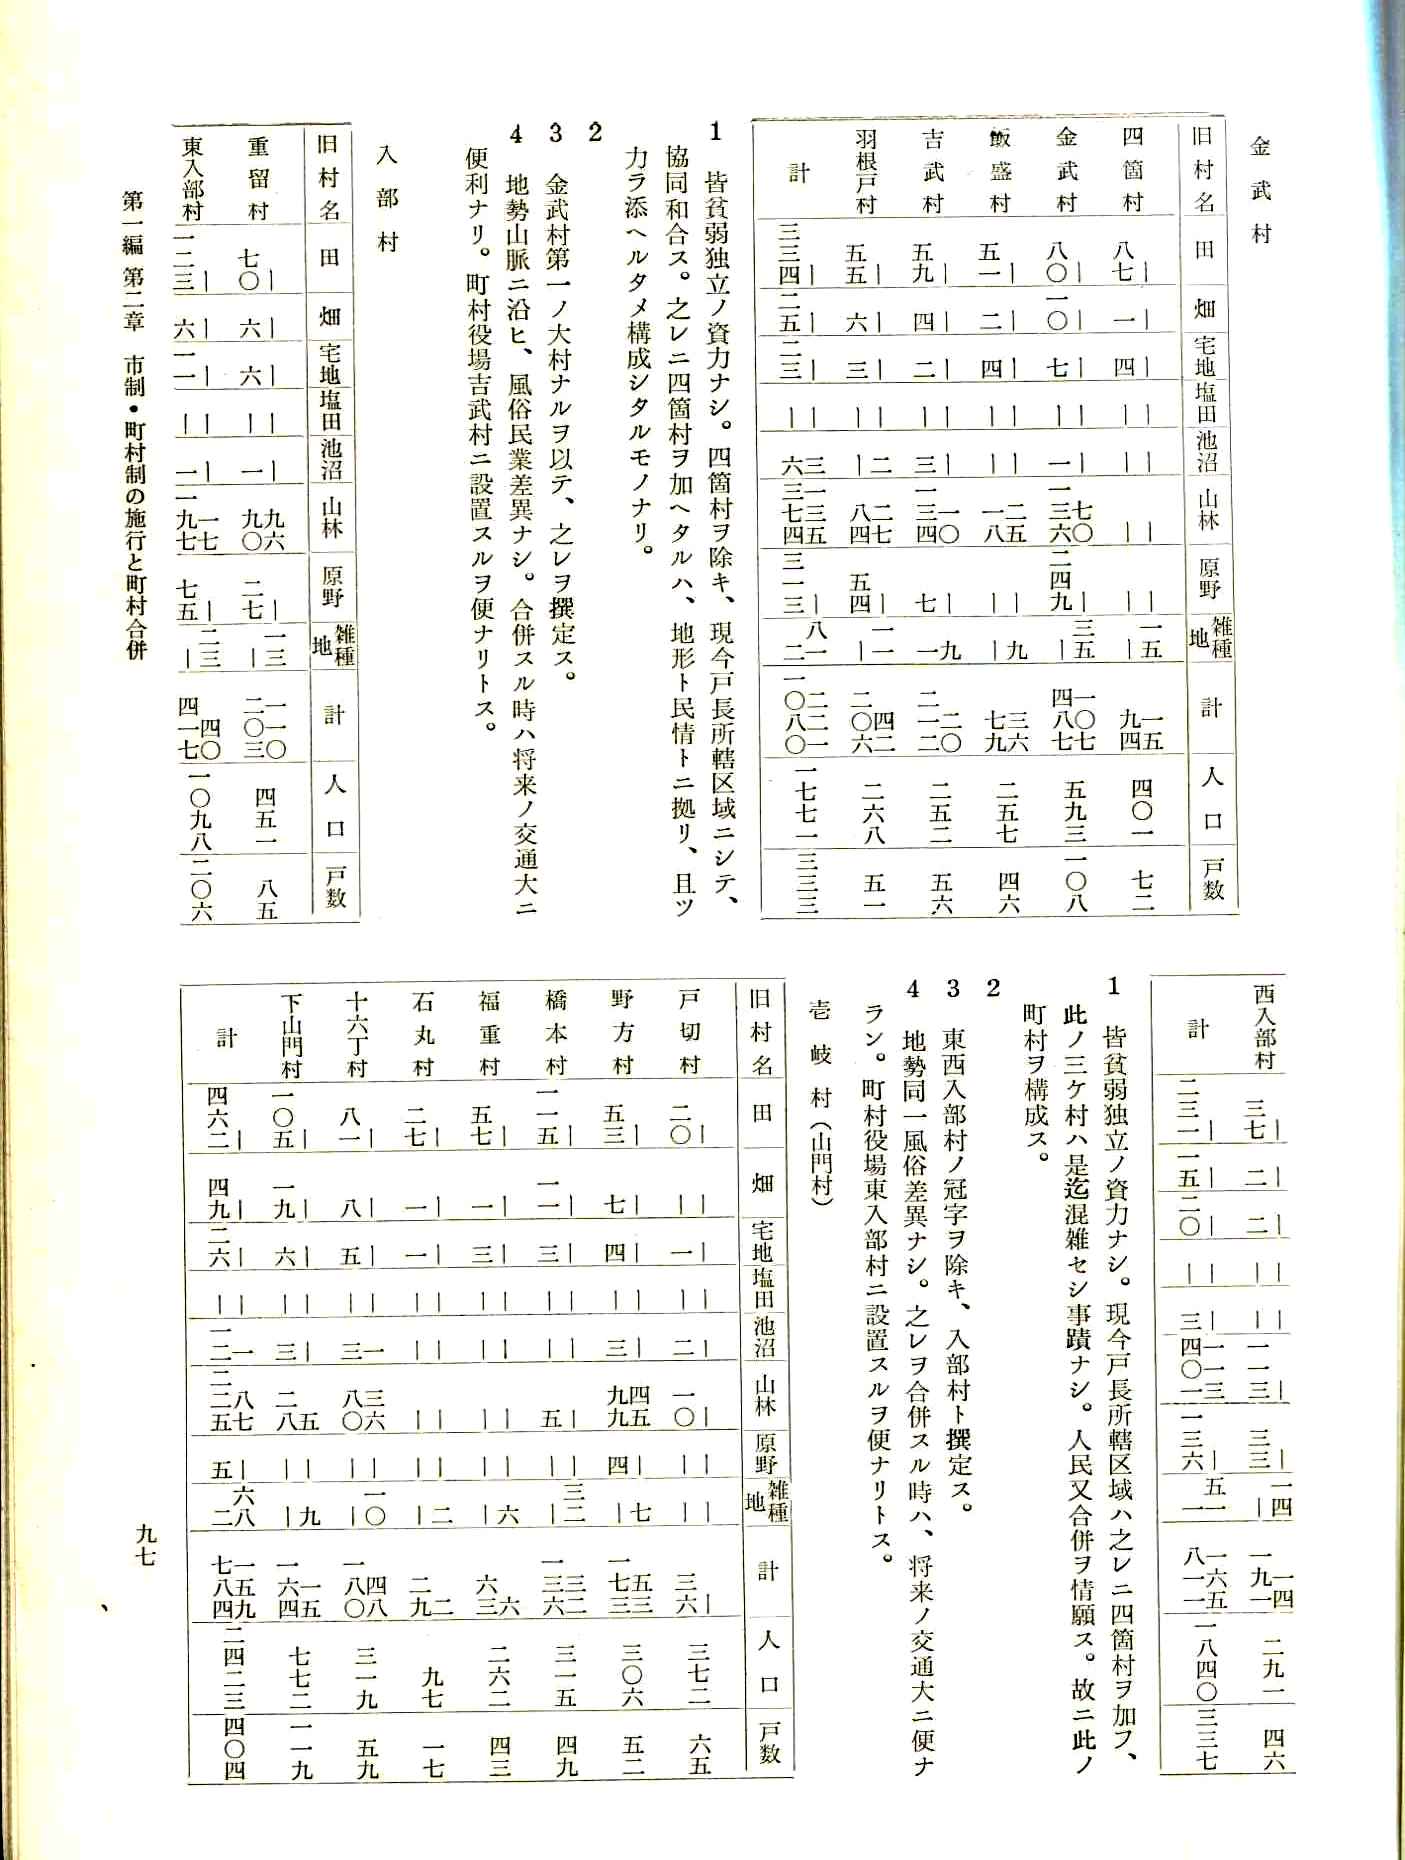 金武村
旧村名 田 畑 宅地 塩田 池沼 山林 原野 雑種地 計 人口 戸数
四箇村 ― 八七 ― 一 ― 四 ― ― ― ― ― ― ― ― 一五 ― 一五 九四 四〇一 七二
金武村 ― 八〇 ― 一〇 ― 七 ― ― ― 一 七〇 一三六 ― 二四九 三五 ― 一〇七 四八七 五九三 一〇八
飯盛村 ― 五一 ― 二 ― 四 ― ― ― ― 二五 一八 ― ― 九 ― 三六 七九 二五七 四六
吉武村 ― 五九 ― 四 ― 二 ― ― ― 三 一〇 一三四 ― 七 九 一 二〇 二一二 二五二 五六
羽根戸村 ― 五五 ― 六 ― 三 ― ― 二 ― 二七 八四 ― 五四 一一 ― 四二 二〇六 二六八 五一
計 ― 三三四 ― 二五 ― 二三 ― ― 三 六 一三五 三七四 ― 三一三 八一 二 二二一 一〇八〇 一七七一 三三三
1 皆貧弱独立ノ資力ナシ。四箇村ヲ除キ、現今戸長所轄区域ニシテ、
協同和合ス。之レニ四箇村ヲ加ヘタルハ、地形ト民情トニ拠リ、且ツ
力ラ添ヘルタメ構成シタルモノナリ。
2
3 金武村第一ノ大村ナルヲ以テ、之レヲ撰定ス。
4 地勢山脈ニ沿ヒ、風俗民業差異ナシ。合併スル時ハ将来ノ交通大ニ
便利ナリ。町村役場吉武村ニ設置スルヲ便ナリトス。
入部村
旧村名 田 畑 宅地 塩田 池沼 山林 原野 雑種地 計 人口 戸数
重留村 ― 七〇 ― 六 ― 六 ― ― ― 一 九六 九〇 ― 二七 一三 ― 一一〇 二〇三 四五一 八五
東入部村 ― 一二三 ― 六 ― 一一 ― ― ― 一 一七 一九七 ― 七五 二三 ― 四〇 四一七 一〇九八 二〇六
第一編 第二章 市制・町村制の施行と町村合併
西入部村 ― 三七 ― 二 ― 二 ― ― ― ― ― 一一三 ― 三三 一四 ― 一四 一九一 二九一 四六
計 ― 二三一 ― 一五 ― 二〇 ― ― ― 三 一一三 四〇一 ― 一三六 五一 一 一六五 八一一 一八四〇 三三七
1 皆貧弱独立ノ資力ナシ。現今戸長所轄区域ハ之レニ四箇村ヲ加フ、
此ノ三ケ村ハ是迄混雑セシ事蹟ナシ。人民又合併ヲ情願ス。故ニ此ノ
町村ヲ構成ス。
2
3 東西入部村ノ冠字ヲ除キ、入部村ト撰定ス。
4 地勢同一風俗差異ナシ。之レヲ合併スル時ハ、将来ノ交通大ニ便ナ
ラン。町村役場東入部村ニ設置スルヲ便ナリトス。
壱岐村(山門村)
旧村名 田 畑 宅地 塩田 池沼 山林 原野 雑種地 計 人口 戸数
戸切村 ― 二〇 ― ― ― 一 ― ― ― 二 ― 一〇 ― ― ― ― ― 三六 三七二 六五
野方村 ― 五三 ― 七 ― 四 ― ― ― 三 四五 九九 ― 四 七 ― 五三 一七三 三〇六 五二
橋本村 ― 一一五 ― 一一 ― 三 ― ― ― ― ― 五 ― ― 三二 ― 三二 一三六 三一五 四九
福重村 ― 五七 ― 一 ― 三 ― ― ― ― ― ― ― ― 六 ― 六 六三 二六二 四三
石丸村 ― 二七 ― 一 ― 一 ― ― ― ― ― ― ― ― 二 ― 二 二九 九七 一七
十六丁村 ― 八一 ― 八 ― 五 ― ― 一 三 三六 八〇 ― ― 一〇 ― 四八 一八〇 三一九 五九
下山門村 ― 一〇五 ― 一九 ― 六 ― ― ― 三 五 二八 ― ― 九 ― 一五 一六四 七七二 一一九
計 ― 四六二 ― 四九 ― 二六 ― ― 一 一二 八七 二二五 ― 五 六八 二 一五九 七八四 二四二三 四〇四
九七